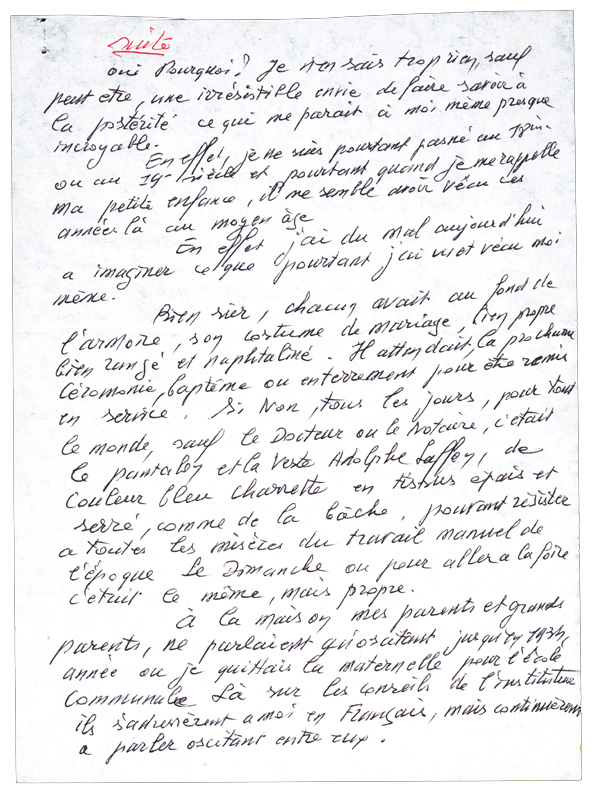 suite
oui Pourquoi? Je n'en sais trop rien, sauf
peut etre, une irrésistible envie de faire savoir à
la postérité ce qui me parait à moi même presque
incroyable.
En effet, je ne suis pourtant pas né au 18ein-
ou au 19-siècle et pourtant quand je me rappelle
ma petite enfance, il me semble avoir vécu ces
années là au moyen âge
En effet j'ai du mal aujourd'hui
a imaginer ce que pourtant j'ai vu et vécu moi
même.
Bien sur, chacun avait au fond de
l'armoire, son costume de mariage, bien propre
bien rangé et naphtaliné. Il attendait, la prochaine
Céromonie, baptême ou enterrement pour être remis
en service. Si Non, tous les jours, pour tout
le monde, sauf le Docteur ou le Notaire, c'était
le pantalon et la veste Adolphe Laffon, de
Couleur bleu charrette en tissus épais et
serré, comme de la bâche, pouvant résister
a toutes les misères du travail manuel de
l'époque Le Dimanche ou pour aller a la foire
c'était le même, mais propre.
à la maison mes parents et grands
parents, ne parlaient qu'ositant jusqu'en 1934,
année ou je quittais la maternelle pour l'école
Communale Là sur les conseils de l'instituteur
ils s'adressèrent a moi en Français, mais continuèrent
a parler ositant entre eux.